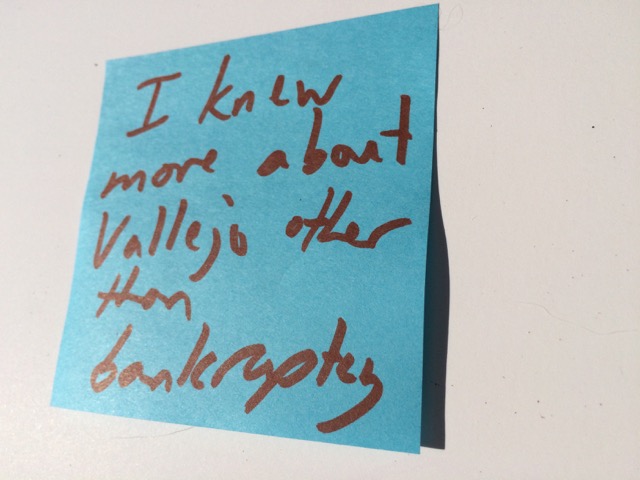 I knew
more about
Vallejo other
than
bankcryptcy